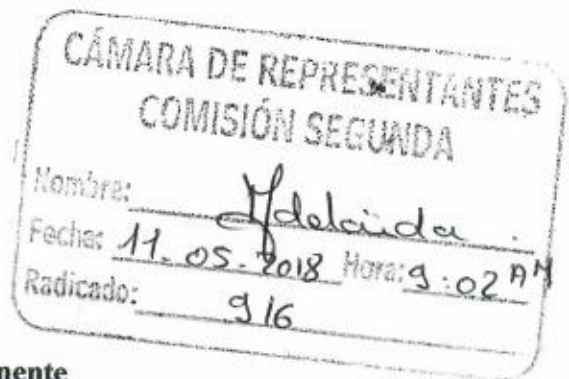 CÁMARA DE REPRESENTANTES
COMISIÓN SEGUNDA
Nombre: Adelaida.
Fecha: 11.05.2018 Hora: 9:02 AM
Radicado: 916
nente